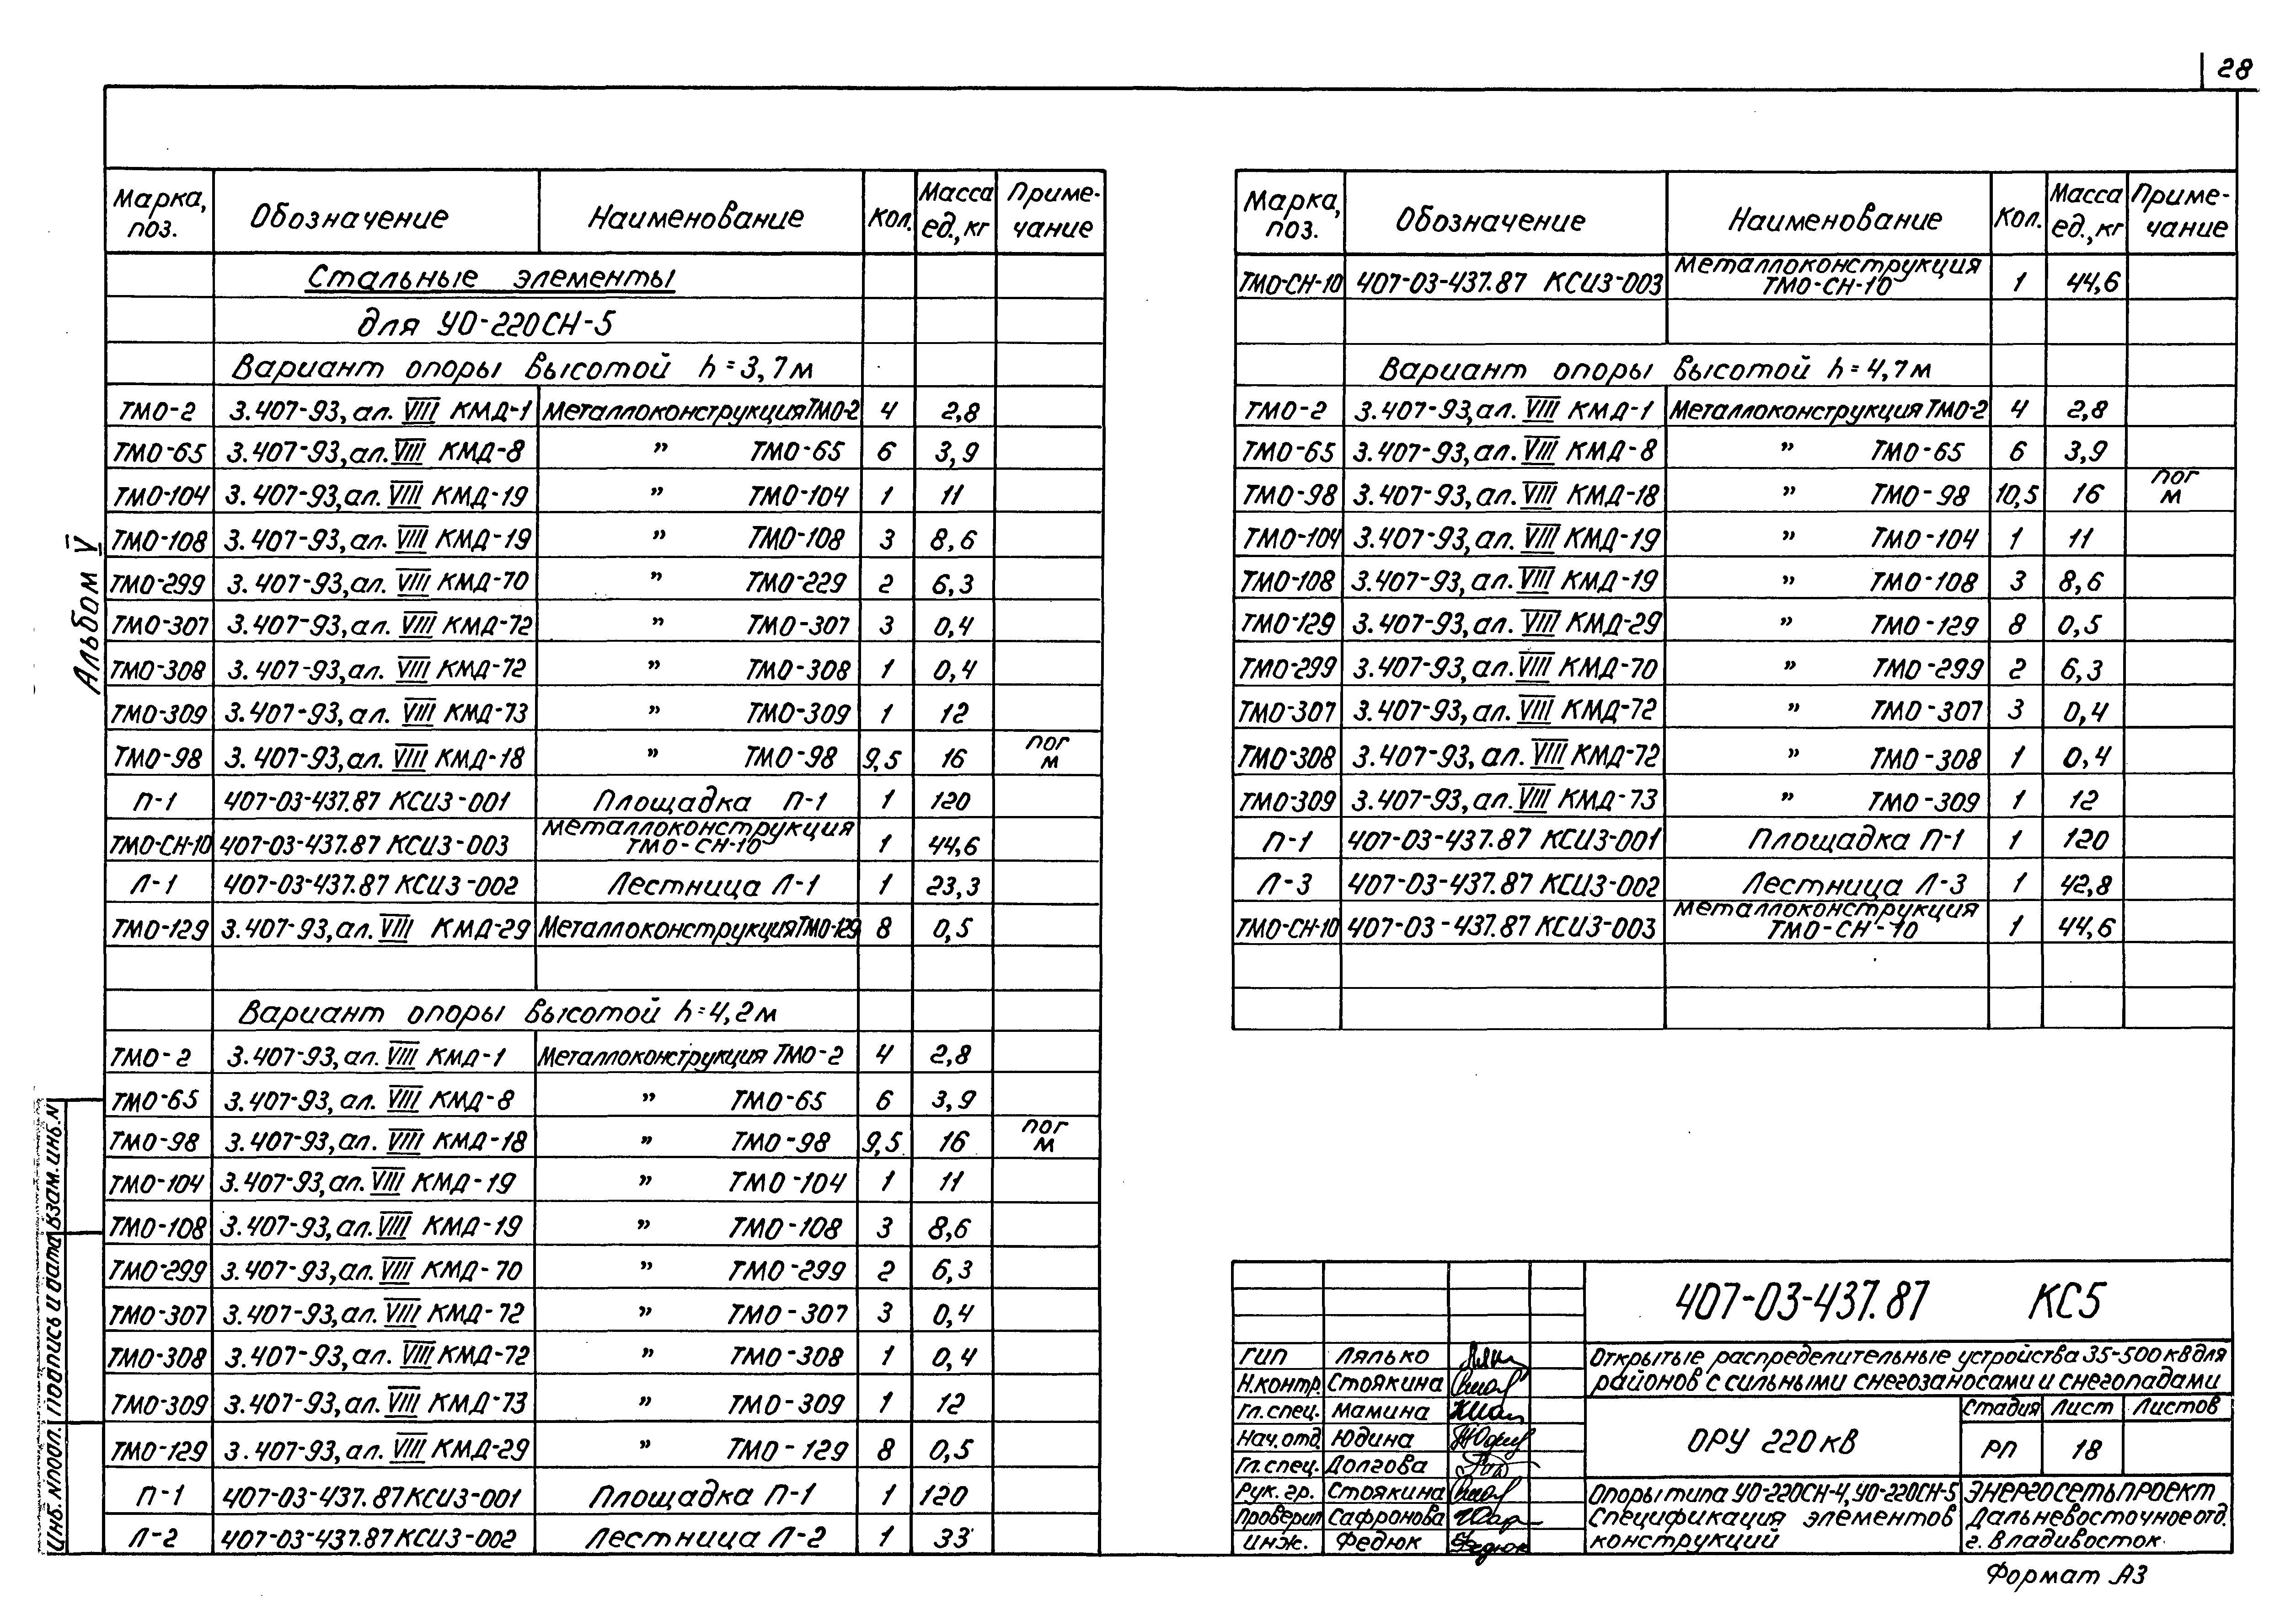 28
Альбом V
Марка, поз. Обозначение Наименование Кол. Масса ед., кг Приме-чание
Стальные элементы
для УО-220СН-5
Вариант опоры высотой h=3,7м
ТМО-2 3.407-93, ал. VIII КМД-1 Металлоконструкция ТМО-2 4 2,8
ТМО-65 3.407-93, ал. VIII КМД-8 " ТМО-65 6 3,9
ТМО-104 3.407-93, ал. VIII КМД-19 " ТМО-104 1 11
ТМО-108 3.407-93, ал. VIII КМД-19 " ТМО-108 3 8,6
ТМО-299 3.407-93, ал. VIII КМД-70 " ТМО-229 2 6,3
ТМО-307 3.407-93, ал. VIII КМД-72 " ТМО-307 3 0,4
ТМО-308 3.407-93, ал. VIII КМД-72 " ТМО-308 1 0,4
ТМО-309 3.407-93, ал. VIII КМД-73 " ТМО-309 1 12
ТМО-98 3.407-93, ал. VIII КМД-18 " ТМО-98 9,5 16 пог м
П-1 407-03-437.87 КСИЗ-001 Площадка П-1 1 120
ТМО-СН-10 407-03-437.87 КСИЗ-003 Металлоконструкция ТМО-СН-10 1 44,6
Л-1 407-03-437.87 КСИЗ-002 Лестница Л-1 1 23,3
ТМО-129 3.407-93, ал. VIII КМД-29 Металлоконструкция ТМО-129 8 0,5
Вариант опоры высотой h=4,2м
ТМО-2 3.407-93, ал. VIII КМД-1 Металлоконструкция ТМО-2 4 2,8
ТМО-65 3.407-93, ал. VIII КМД-8 " ТМО-65 6 3,9
ТМО-98 3.407-93, ал. VIII КМД-18 " ТМО-98 9,5 16 пог м
ТМО-104 3.407-93, ал. VIII КМД-19 " ТМО-104 1 11
ТМО-108 3.407-93, ал. VIII КМД-19 " ТМО-108 3 8,6
ТМО-299 3.407-93, ал. VIII КМД-70 " ТМО-299 2 6,3
ТМО-307 3.407-93, ал. VIII КМД-72 " ТМО-307 3 0,4
ТМО-308 3.407-93, ал. VIII КМД-72 " ТМО-308 1 0,4
ТМО-309 3.407-93, ал. VIII КМД-73 " ТМО-309 1 12
ТМО-129 3.407-93, ал. VIII КМД-29 " ТМО-129 8 0,5
П-1 407-03-437.87 КСИЗ-001 Площадка П-1 1 120
Л-2 407-03-437.87 КСИЗ-002 Лестница Л-2 1 33
Инв. N подл. Подпись и дата Взам. инв. N
Марка, поз. Обозначение Наименование Кол. Масса ед., кг Приме-чание
ТМО-СН-10 407-03-437.87 КСИЗ-003 Металлоконструкция ТМО-СН-10 1 44,6
Вариант опоры высотой h=4,7м
ТМО-2 3.407-93, ал. VIII КМД-1 Металлоконструкция ТМО-2 4 2,8
ТМО-65 3.407-93, ал. VIII КМД-8 " ТМО-65 6 3,9
ТМО-98 3.407-93, ал. VIII КМД-18 " ТМО-98 10,5 16 пог м
ТМО-104 3.407-93, ал. VIII КМД-19 " ТМО-104 1 11
ТМО-108 3.407-93, ал. VIII КМД-19 " ТМО-108 3 8,6
ТМО-129 3.407-93, ал. VIII КМД-29 " ТМО-129 8 0,5
ТМО-299 3.407-93, ал. VIII КМД-70 " ТМО-299 2 6,3
ТМО-307 3.407-93, ал. VIII КМД-72 " ТМО-307 3 0,4
ТМО-308 3.407-93, ал. VIII КМД-72 " ТМО-308 1 0,4
ТМО-309 3.407-93, ал. VIII КМД-73 " ТМО-309 1 12
П-1 407-03-437.87 КСИЗ-001 Площадка П-1 1 120
Л-3 407-03-437.87 КСИЗ-002 Лестница Л-3 1 42,8
ТМО-СН-10 407-03-437.87 КСИЗ-003 Металлоконструкция ТМО-СН-10 1 44,6
407-03-437.87 КС5
ГИП Лялько
Н.контр. Стоякина
Гл.спец. Мамина
Нач.отд. Юдина
Гл.спец. Долгова
Рук. гр. Стоякина
Проверил Сафронова
Инж. Федюк
Открытые распределительные устройства 35-500кВ для
районов с сильными снегозаносами и снегопадами
ОРУ 220кВ
Стадия Лист Листов
РП 18
Опоры типа УО-220СН-4, УО-220СН-5
Спецификация элементов
конструкций
Энергосетьпроект
Дальневосточное отд.
г. Владивосток
Формат А3